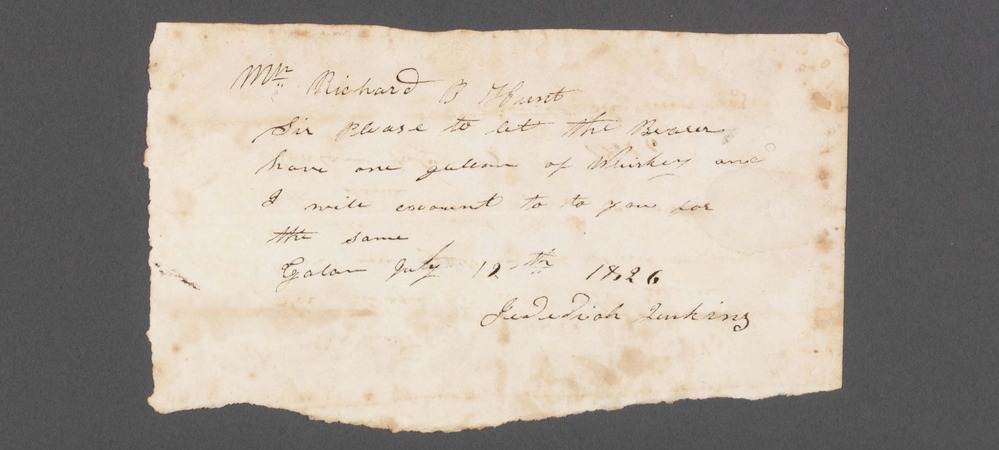 Mr Richard B Hunt
Sir Please to let the Bearer
have one gallon of Whiskey and
I will account to to you for
the same
July 12th 1826
Jedediah Jinkins